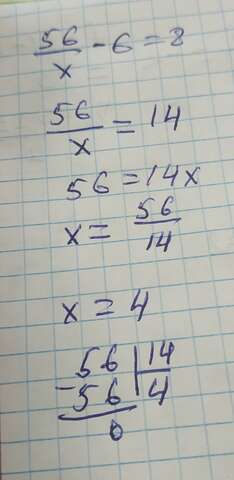 56/x - 6 = 8
56/x = 14
56 = 14x
x = 56/14
x = 4
56 | 14
- 56 | 4
0